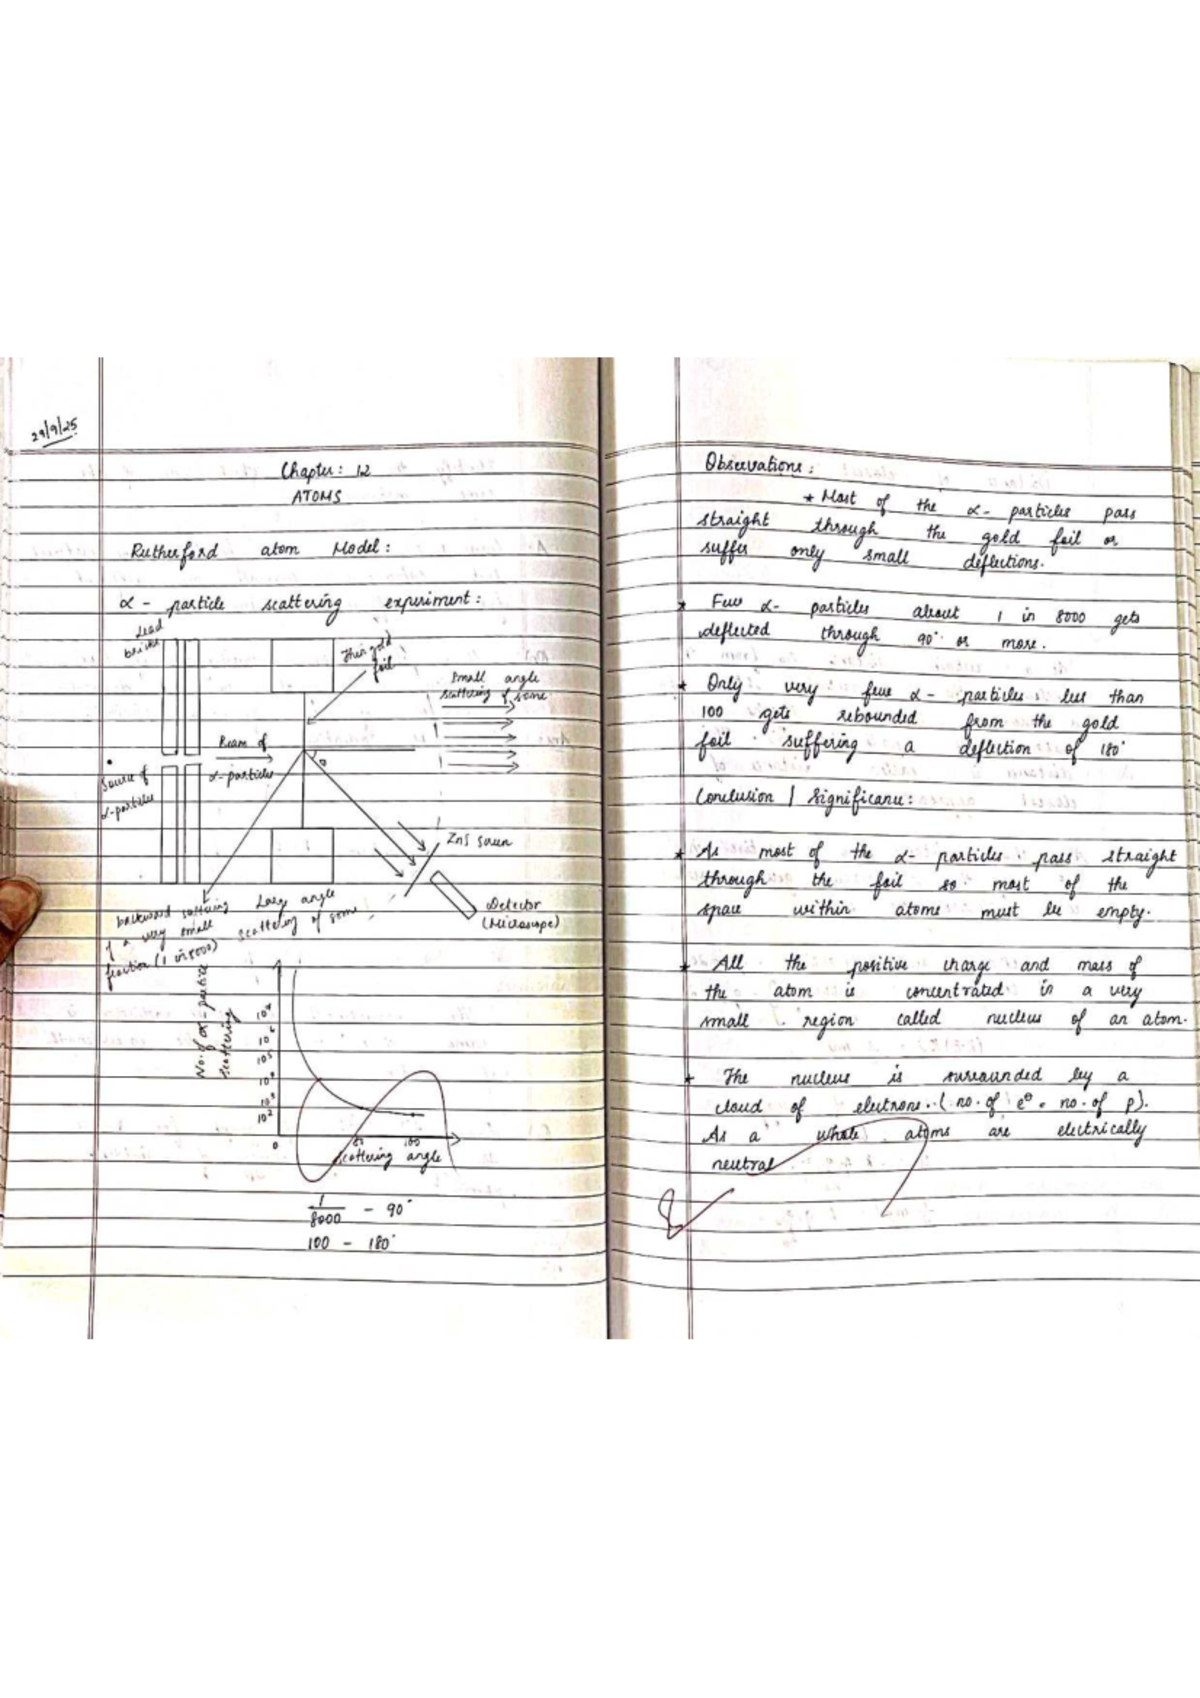 29/9/25
Chapter: 12
ATOMS
Rutherford atom Model:
α - particle scattering experiment:
Lead
bricks
Thin gold
foil
Small angle
scattering of some
Beam of
α-particles
Source of
α-particles
θ
ZnS screen
Detector
(Microscope)
Large angle
scattering of some
backward scattering
of a very small
fraction (1 in 8000)
No. of α-particle
scattering
10⁵
10⁴
10³
10²
0
100
scattering angle
1/8000 - 90°
100 - 180°
Observations:
* Most of the α- particles pass
straight through the gold foil or
suffer only small deflections.
* Few α- particles about 1 in 8000 gets
deflected through 90° or more.
* Only very few α- particles, less than
100 gets rebounded from the gold
foil suffering a deflection of 180°
Conclusion / Significance:
* As most of the α- particles pass straight
through the foil so most of the
space within atoms must be empty.
* All the positive charge and mass of
the atom is concentrated in a very
small region called nucleus of an atom.
* The nucleus is surrounded by a
cloud of electrons. (no. of e⁰ = no. of p).
As a whole atoms are electrically
neutral